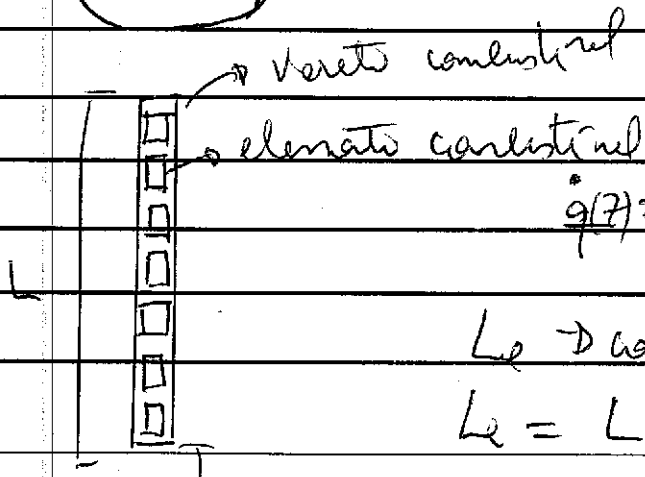 vareta combustível
elemento combustível
q̇(z) =
L
Le → co
Le = L